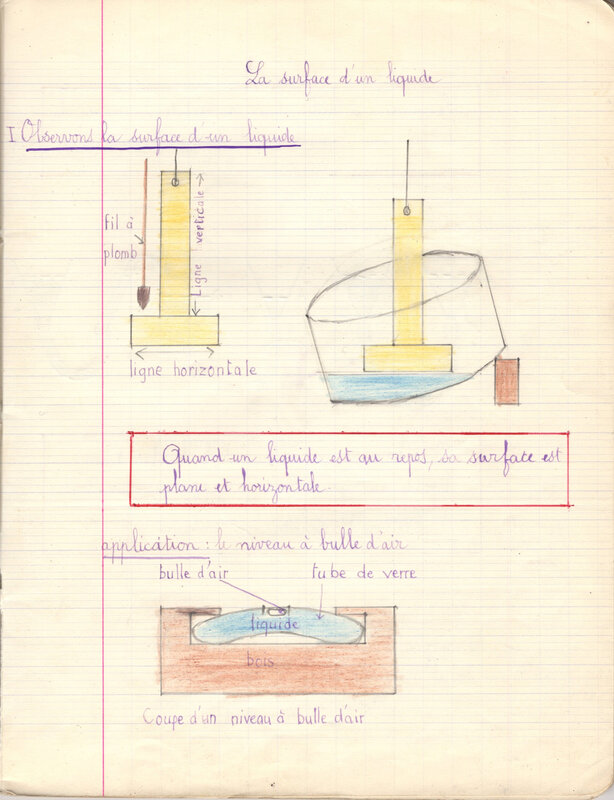 La surface d'un liquide
I Observons la surface d'un liquide
fil à
plomb
Ligne verticale
ligne horizontale
Quand un liquide est au repos, sa surface est
plane et horizontale.
application : le niveau à bulle d'air
bulle d'air
tube de verre
liquide
bois
Coupe d'un niveau à bulle d'air